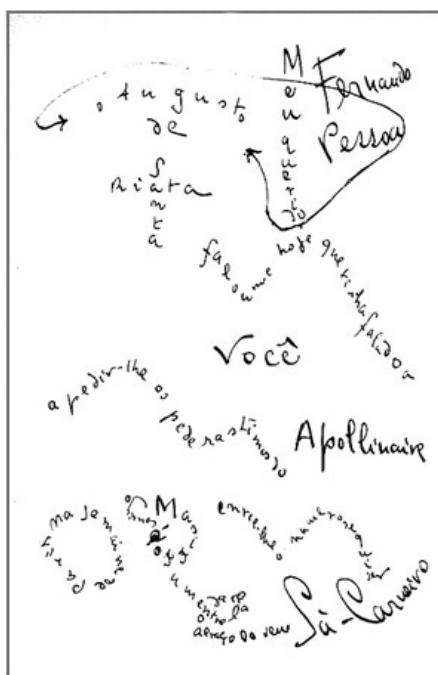 Meu querido
Fernando
Pessoa
o Augusto
de
Santa
Rita
falou-me hoje que tinha falado a
Você
a pedir-lhe os
pederastismos do
Apollinaire
na Semaine
de Paris
Mas
abraço do seu
Sá-Carneiro